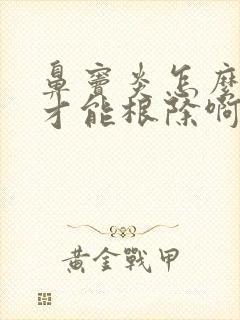 鼻竇炎怎麼
才能根除啊
黃金戰甲